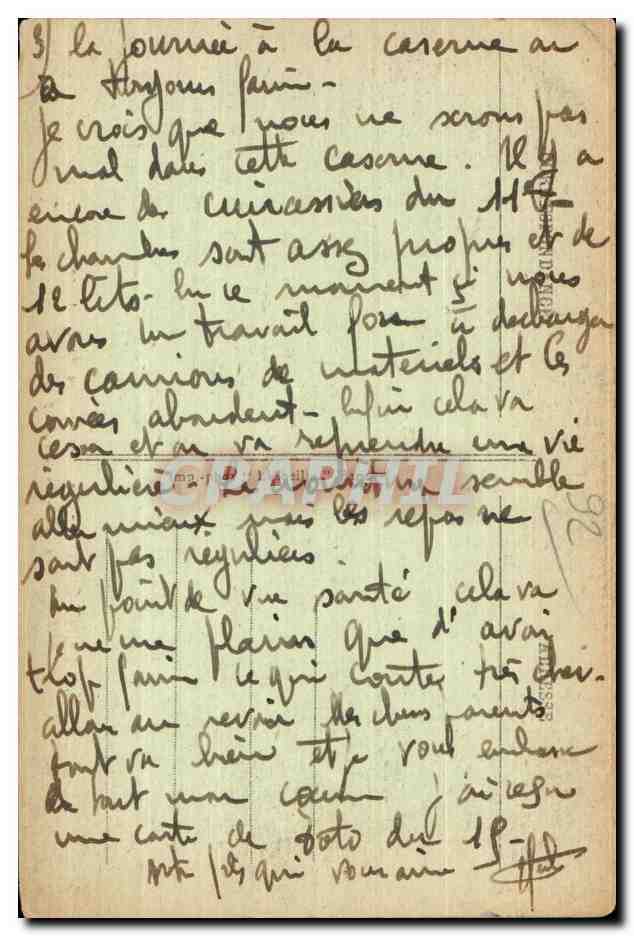 3) la journée à la caserne on
a toujours faim -
je crois que nous ne serons pas
mal dans cette caserne. Il y a
encore des cuirassiers du 11e -
les chambres sont assez propres et de
12 lits - En ce moment ci nous
avons un travail fou à decharger
des camions de materiels et les
corvées abondent - Enfin cela va
cesser et on va reprendre une vie
régulière - semble
aller mieux mais les repas ne
sont pas réguliers.
Au point de vue santé cela va
je ne me plains que d'avoir
trop faim ce qui coute très cher -
allons au revoir mes chers parents
tout va bien et je vous embrasse
de tout mon coeur j'ai reçu
une carte de Toto du 19 -
qui vous aime
92
CORRESPONDANCE
ADRESSE
CPAPHIL